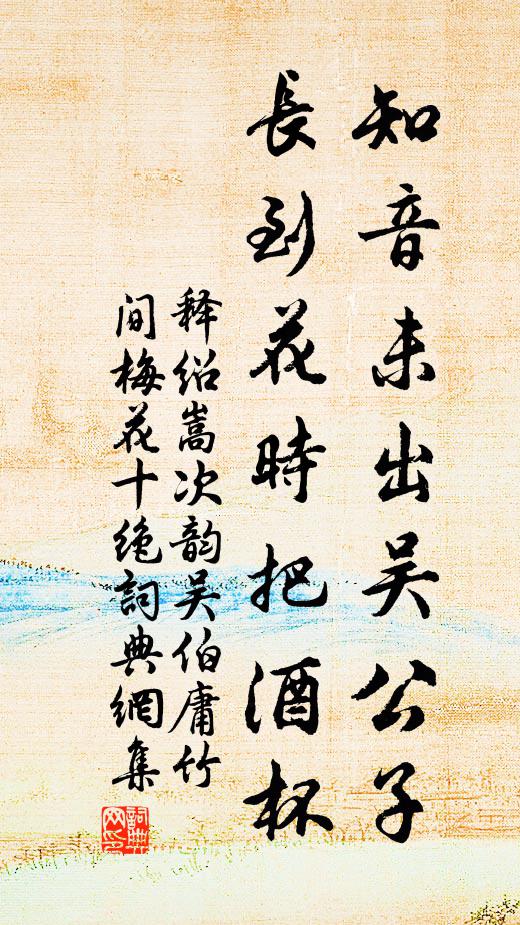 知音未出吴公子
長到花時把酒杯
释绍嵩次韵吴伯庸竹
间梅花十绝詞典網集
詞典网印